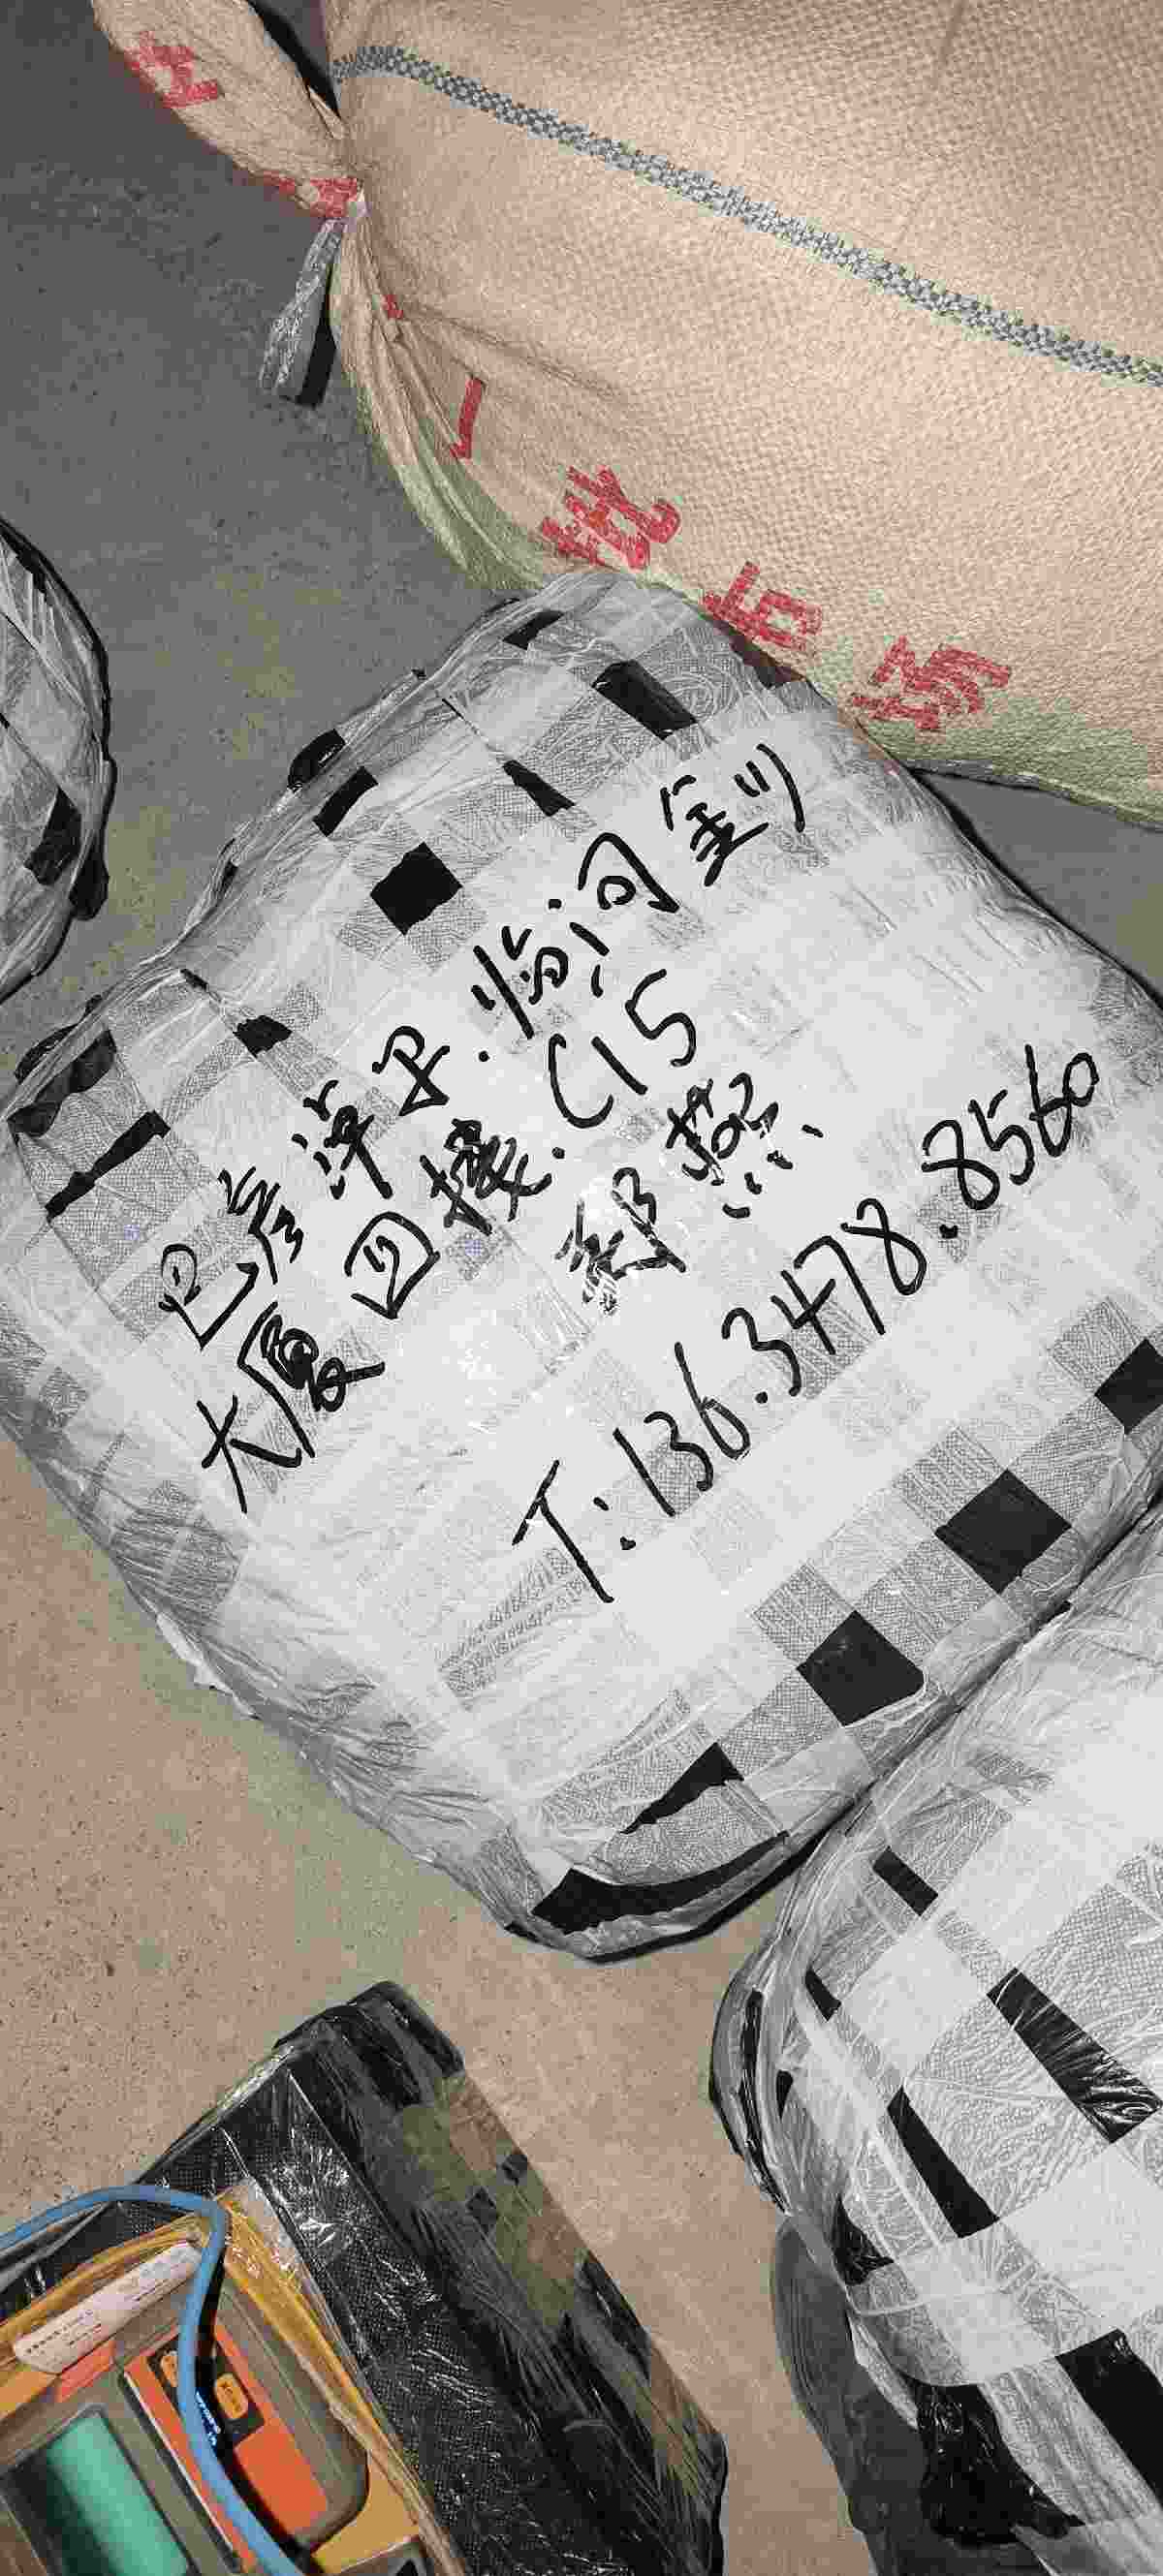 巴彦淖尔.临河金川
大厦四楼.C15
郭燕
T:136.3478.8560